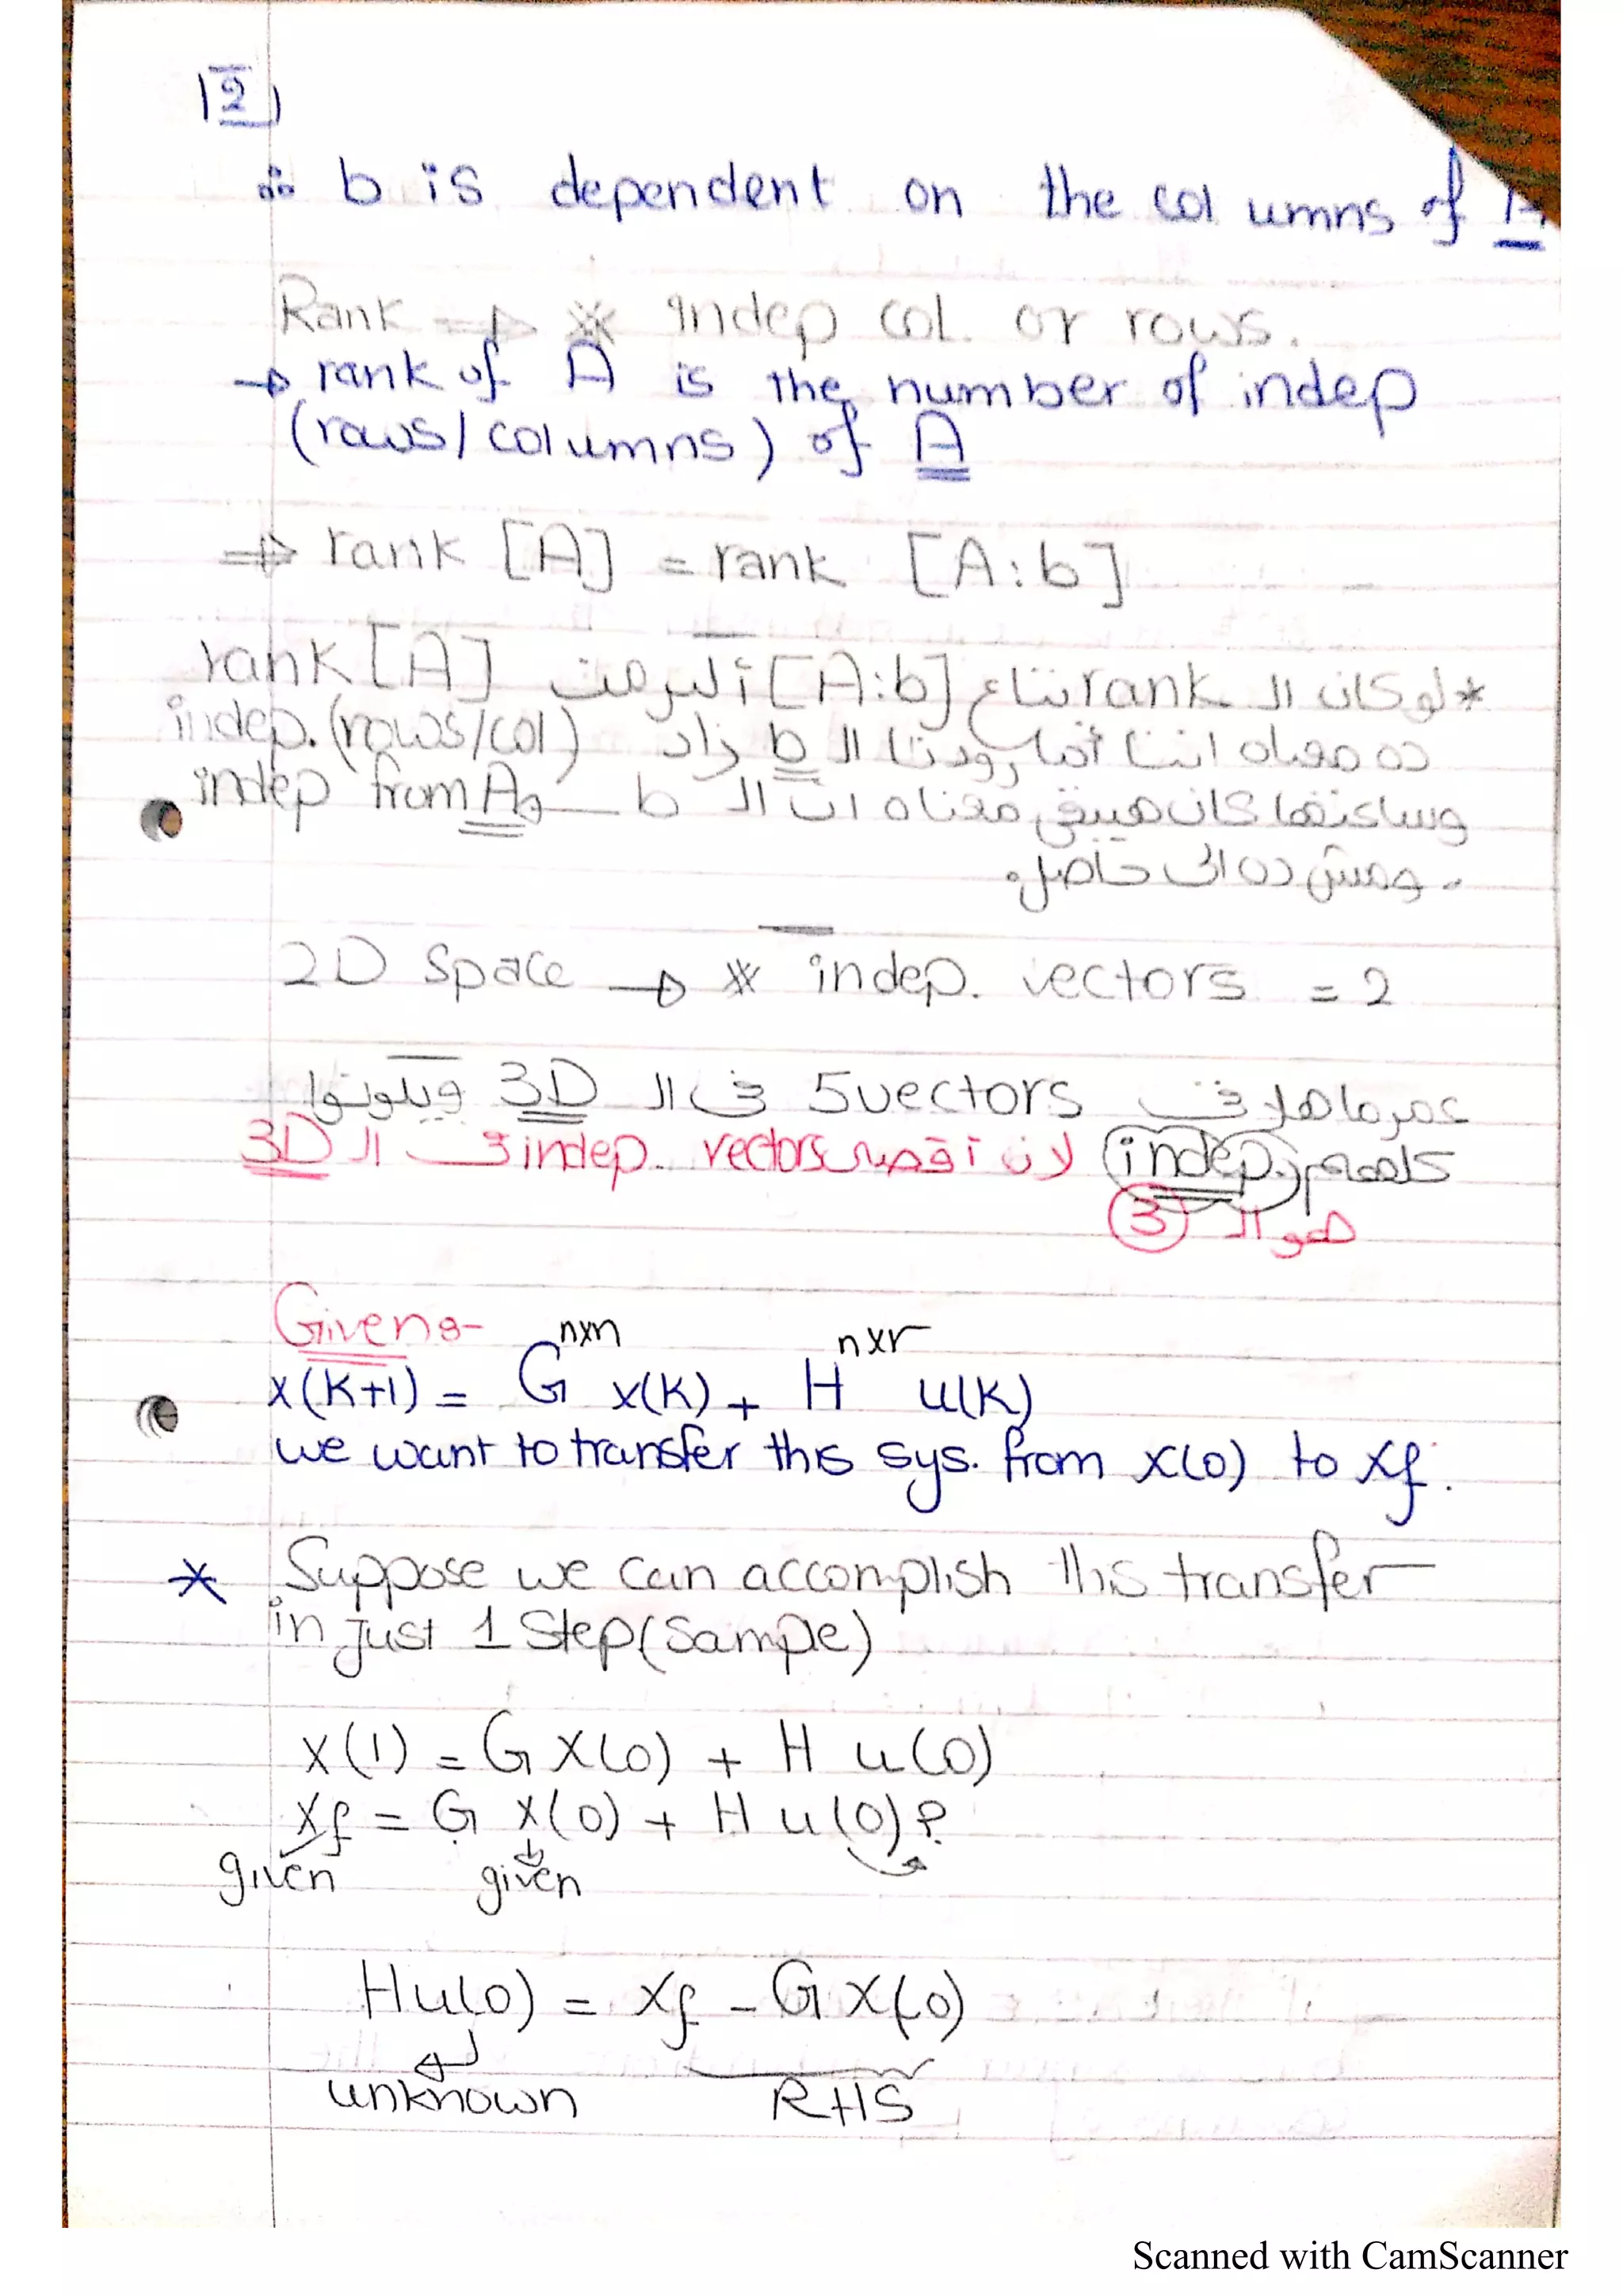 2
∴ b is dependent on the columns of A
Rank ⇒ # indep col. or rows.
→ rank of A is the number of indep
(rows/columns) of A
⇒ rank [A] = rank [A:b]
* لو كان الـ rank بتاع [A:b] أكبر من rank[A]
ده معناه اننا أما زودنا الـ b زاد indep. (rows/col)
وساعتها كان هيبقى معناه ان الـ b indep from A
ومش ده الى حاصل.
2D Space → # indep. vectors = 2
عمر ما هلاقى 5 vectors فى الـ 3D ويكونوا
كلهم indep. لان أقصى indep. vectors فى الـ 3D
هو الـ 3
Given:-
x(k+1) = G^{nxn} x(k) + H^{nxr} u(k)
we want to transfer this sys. from x(0) to xf.
* Suppose we can accomplish this transfer
in just 1 Step (Sample)
x(1) = G x(0) + H u(0)
xf = G x(0) + H u(0) ?
given given
H u(0) = xf - G x(0)
unknown RHS
Scanned with CamScanner